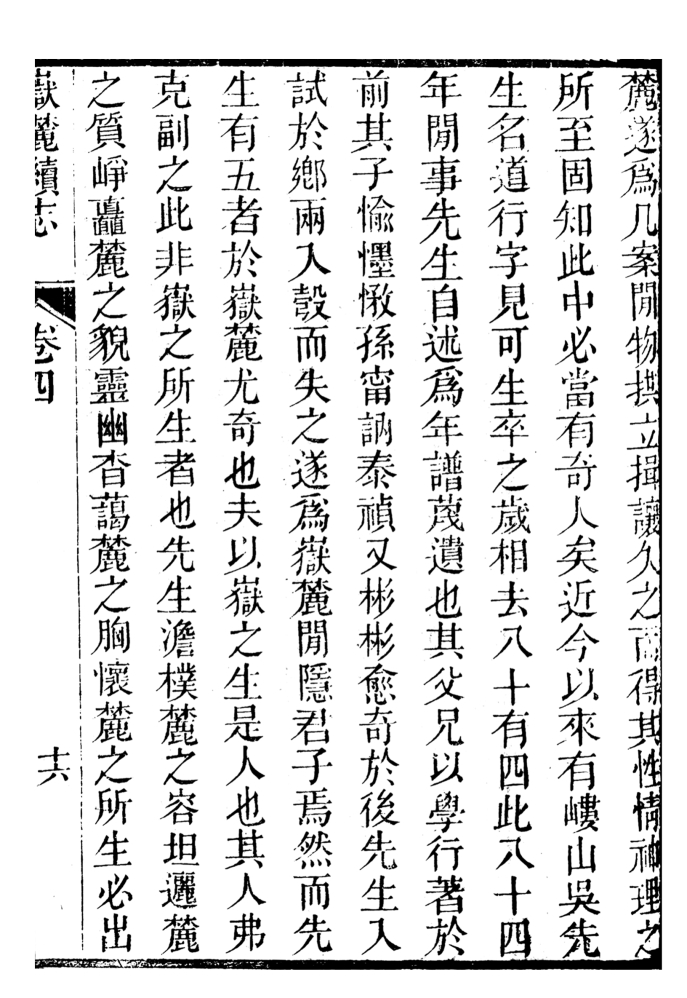 麓遂爲几案閒物拱立揖讓久之而得其性情神理之
所至固知此中必當有奇人矣近今以來有嶁山吳先
生名道行字見可生卒之歲相去八十有四此八十四
年閒事先生自述爲年譜蔑遺也其父兄以學行著於
前其子愉懷㦃孫甯訥泰禎又彬彬愈奇於後先生入
試於鄉兩入彀而失之遂爲嶽麓閒隱君子焉然而先
生有五者於嶽麓尤奇也夫以嶽之生是人也其人弗
克副之此非嶽之所生者也先生澹樸麓之容坦邐麓
之質崢矗麓之貌靈幽杳藹麓之胸懷麓之所生必出
嶽麓續志 卷四 十六